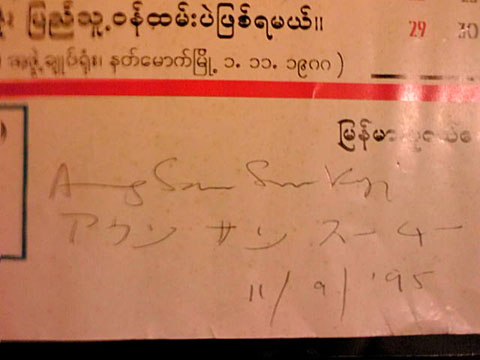 ပြည်သူ့ဝန်ထမ်းပဲဖြစ်ရမယ်။ 29 30
အဖွဲ့ချုပ်ရုံး၊ နတ်မောက်မြို့ ၁. ၁၁. ၁၉၈၈ )
Aung San Suu Kyi
アウン サン スー チー
11/9/'95